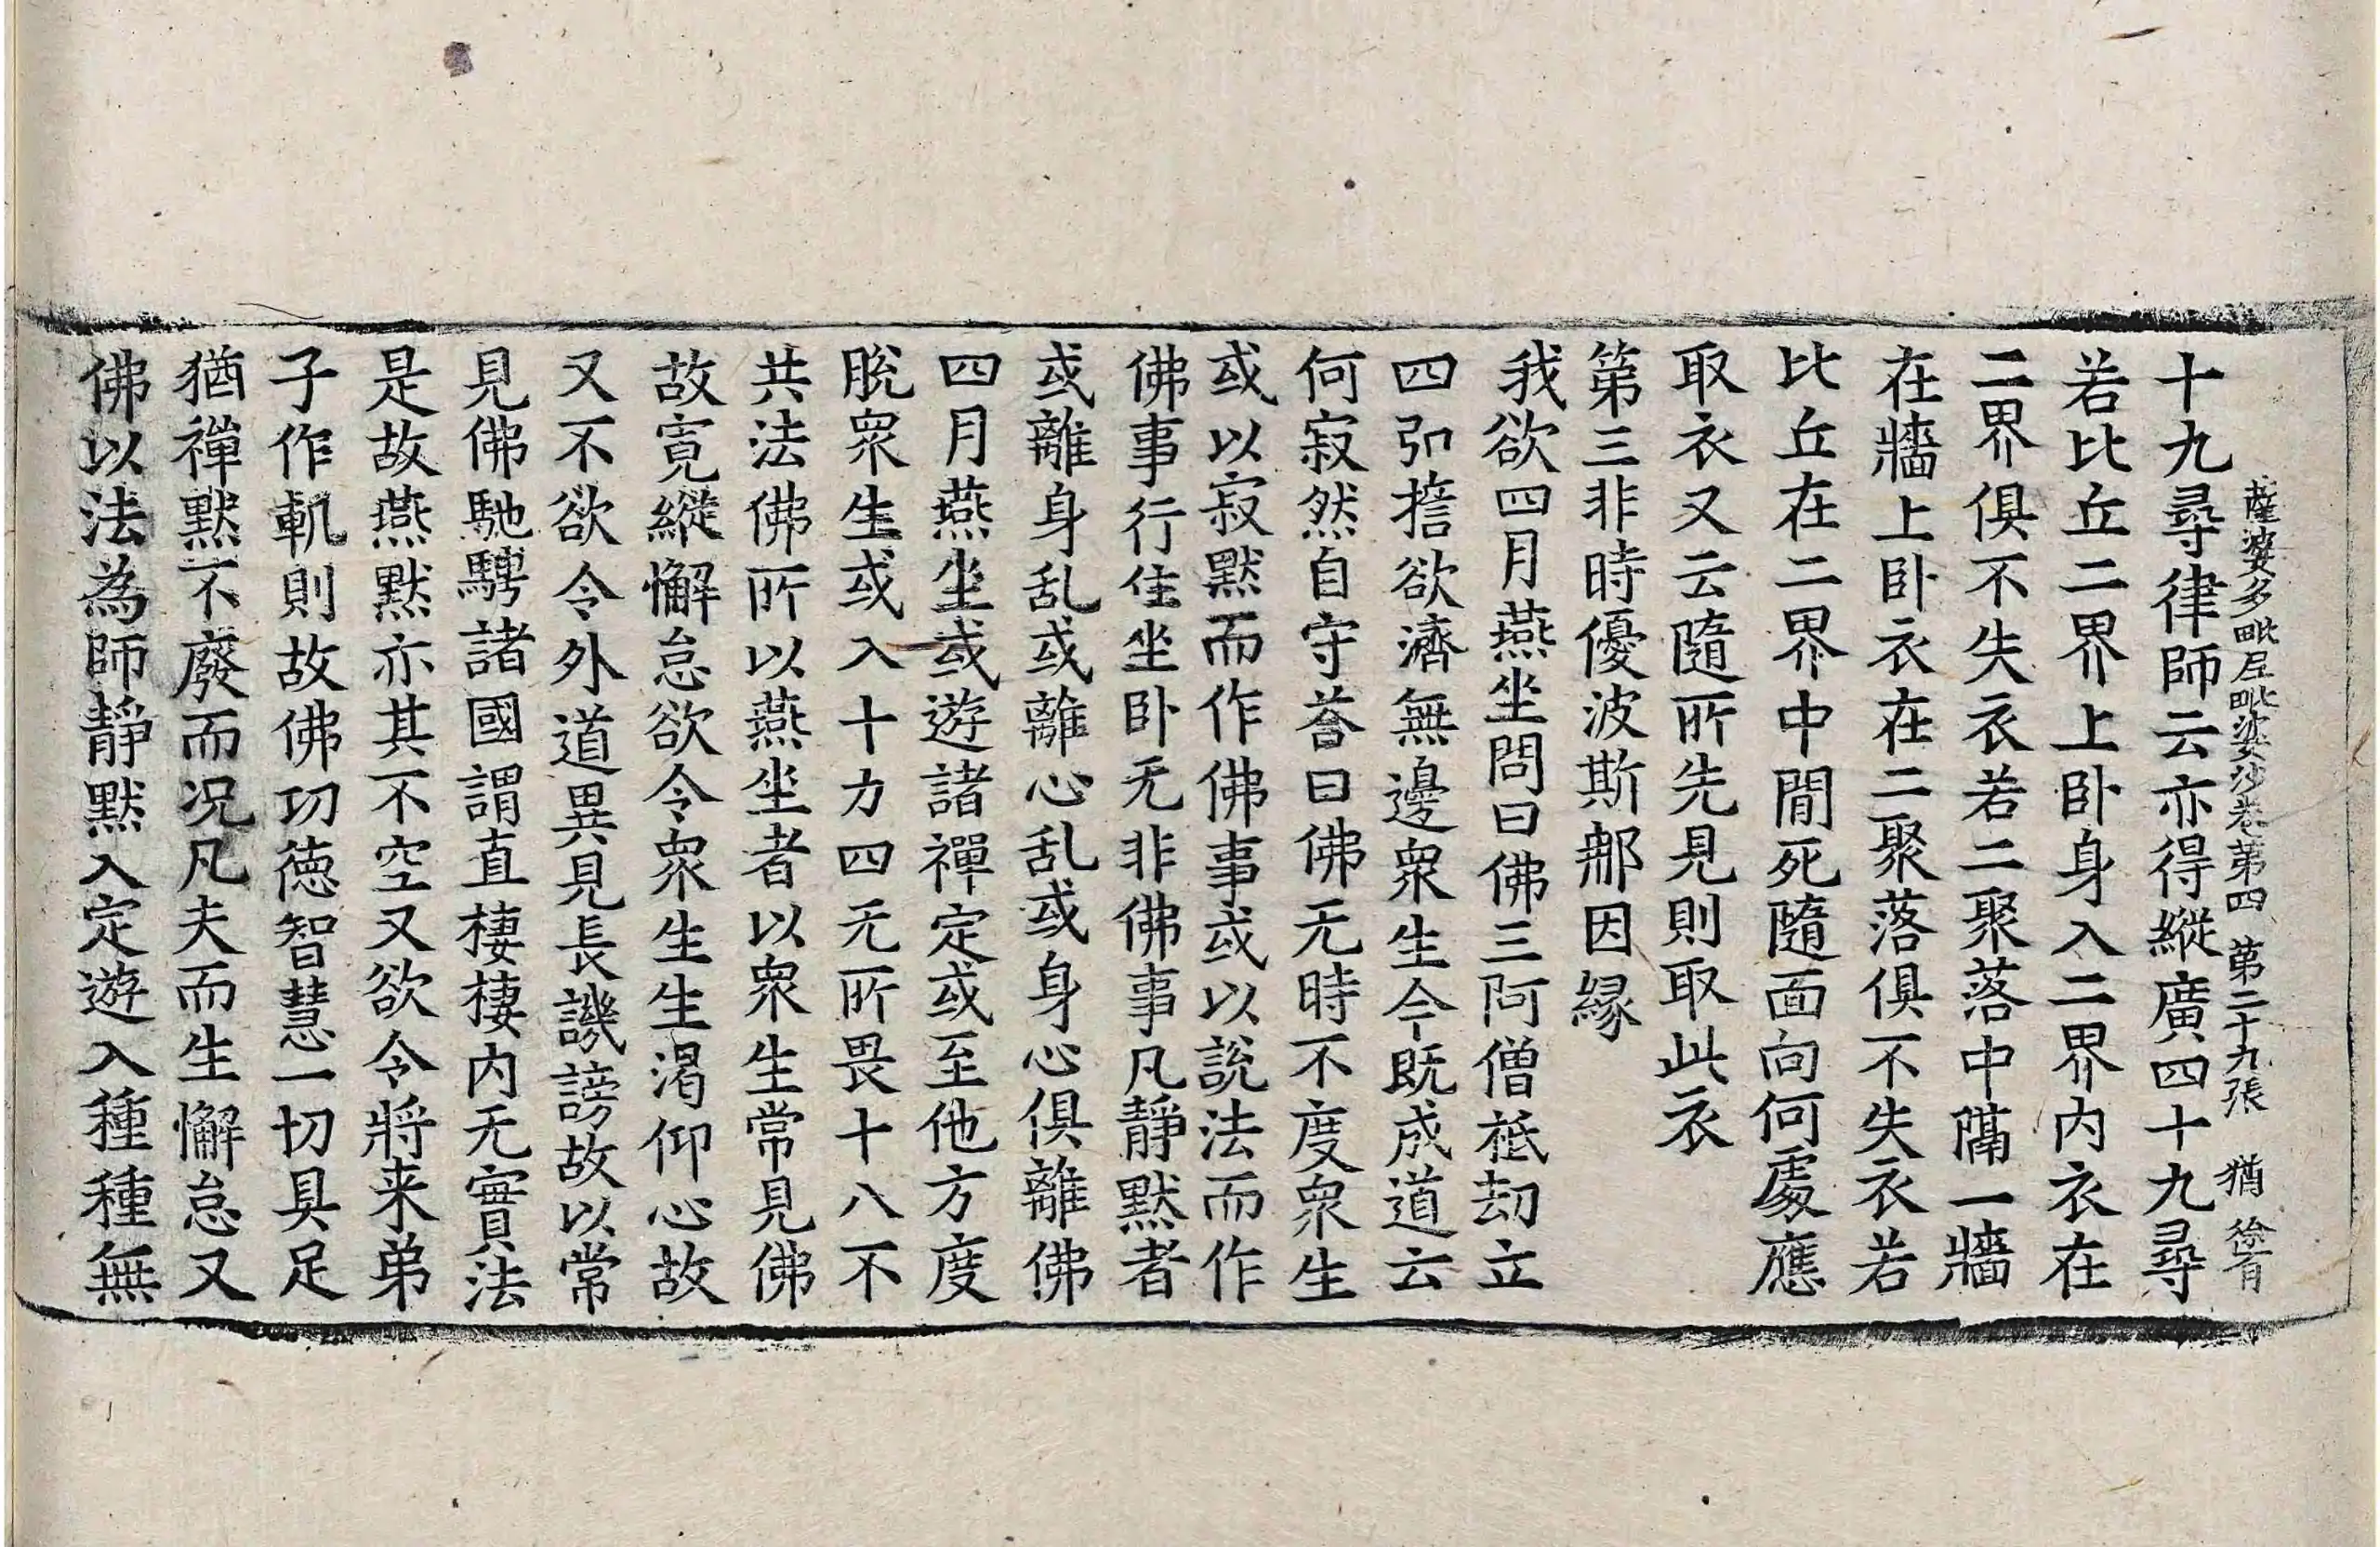 薩婆多毗尼毗婆沙卷第四 第二十九張 猶 徐有
十九尋律師云亦得縱廣四十九尋
若比丘二界上卧身入二界内衣在
二界俱不失衣若二聚落中隔一牆
在牆上卧衣在二聚落俱不失衣若
比丘在二界中間死隨面向何處應
取衣又云隨所先見則取此衣
第三非時優波斯那因縁
我欲四月燕坐問曰佛三阿僧祇劫立
四弘擔欲濟無邊衆生今既成道云
何寂然自守荅曰佛无時不度衆生
或以寂默而作佛事或以說法而作
佛事行住坐卧无非佛事凡靜默者
或離身乱或離心乱或身心俱離佛
四月燕坐或遊諸禪定或至他方度
脫衆生或入十力四无所畏十八不
共法佛所以燕坐者以衆生常見佛
故寛縱懈怠欲令衆生生渴仰心故
又不欲令外道異見長譏謗故以常
見佛馳騁諸國謂直棲棲内无實法
是故燕默亦其不空又欲令將来弟
子作軌則故佛功徳智慧一切具足
猶禪默不廢而况凡夫而生懈怠又
佛以法為師靜默入定遊入種種無